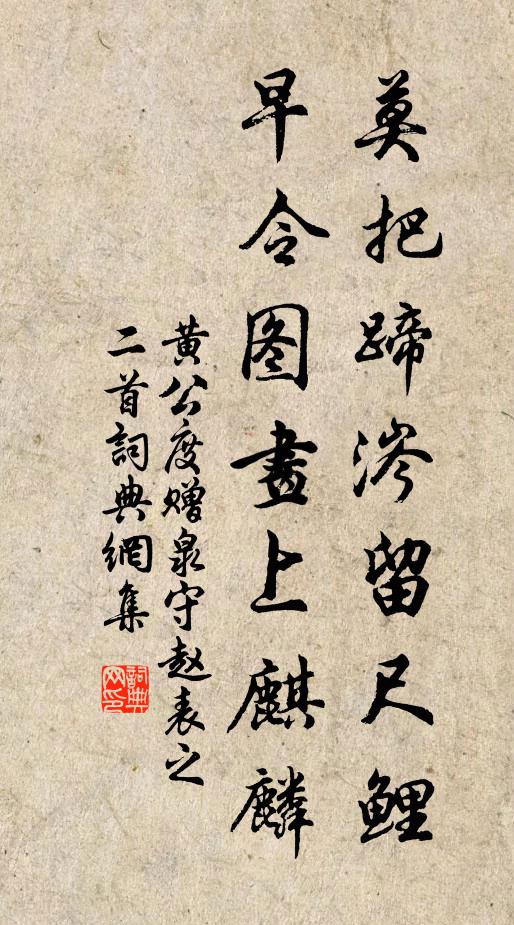 莫把蹄涔留尺鲤
早令图畫上麒麟
黄公度赠泉守赵表之
二首詞典網集
詞典网印